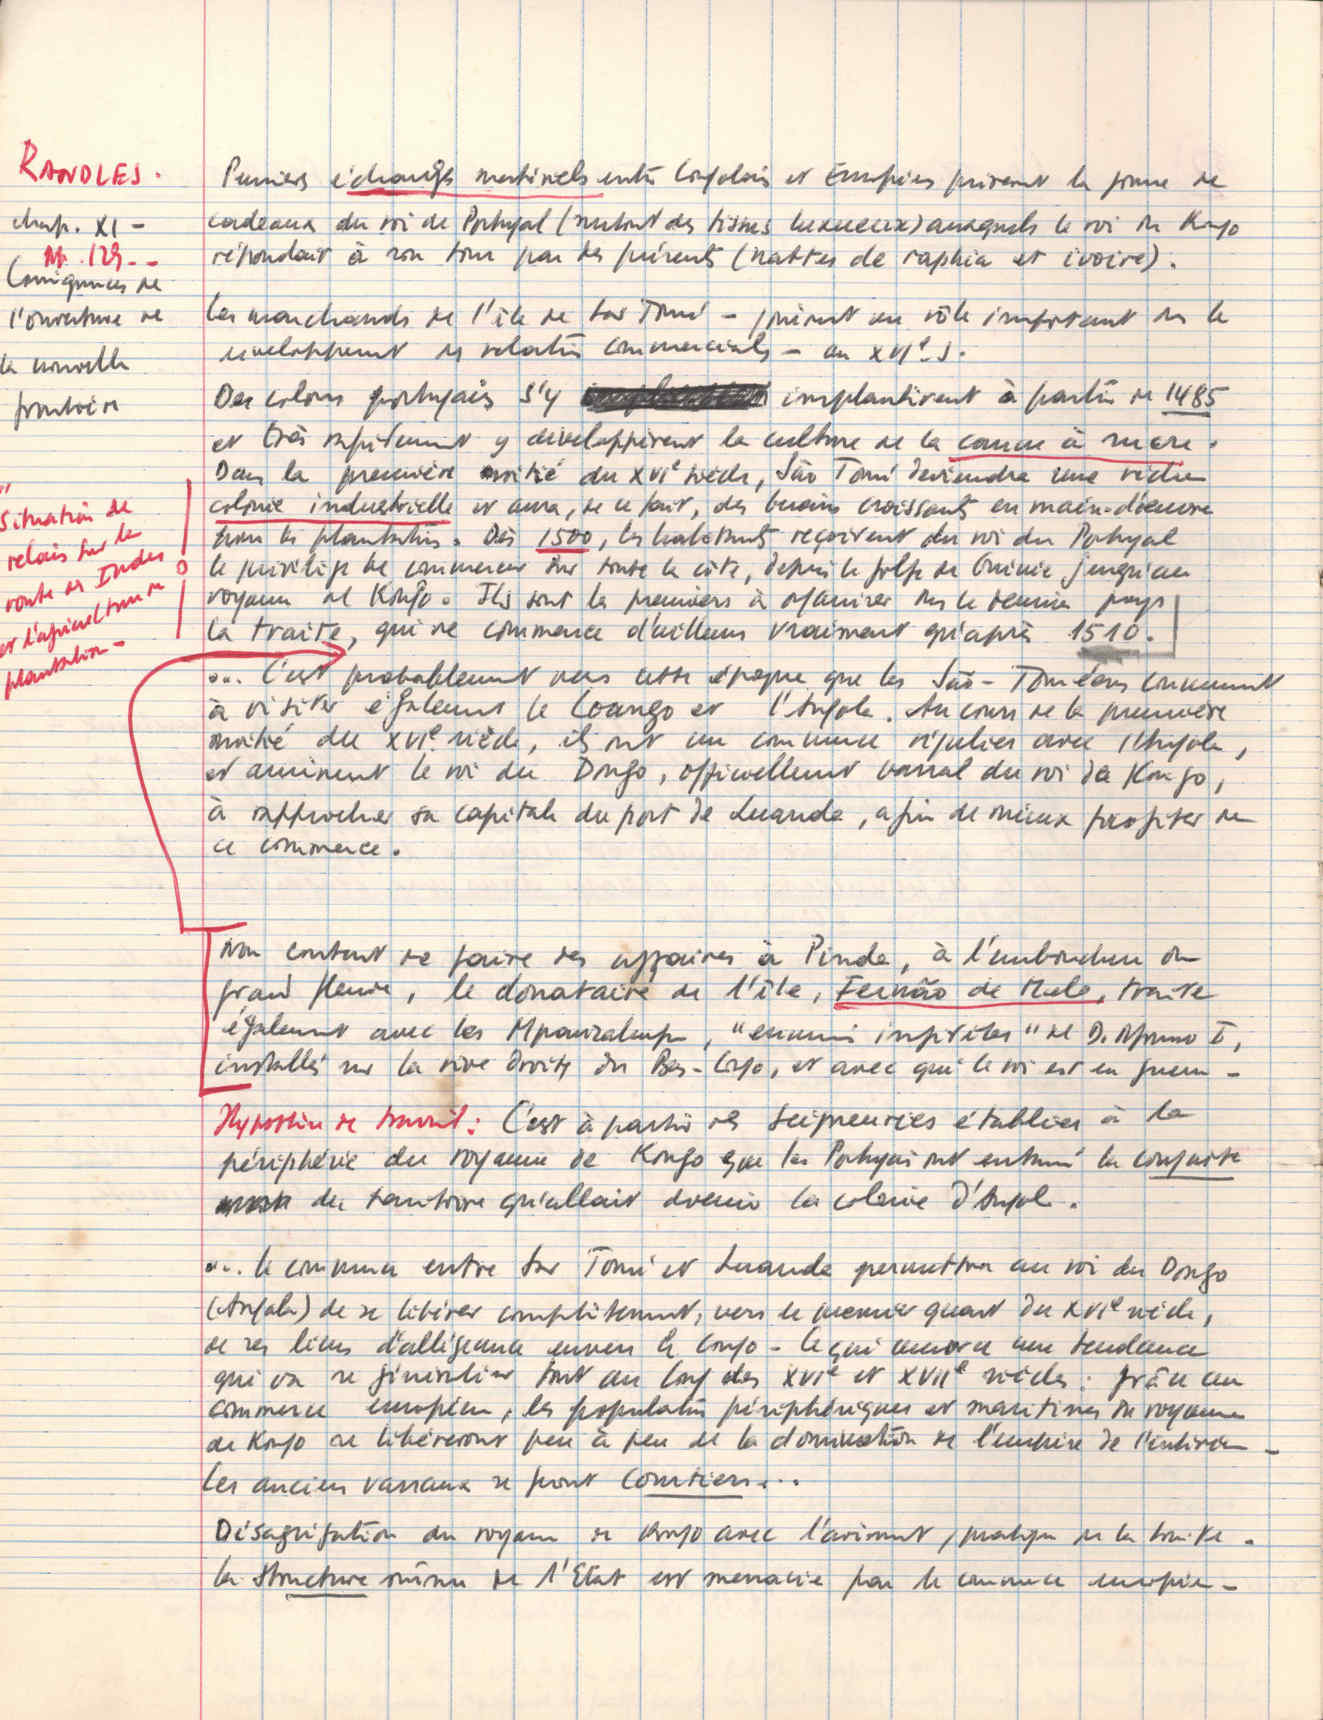 RANDLES.
chap. XI -
pp. 129--
Conséquences de
l'ouverture de
la nouvelle
frontière
Premiers échanges matériels entre Congolais et Européens prirent la forme de
cadeaux du roi de Portugal (surtout des tissus luxueux) auxquels le roi du Kongo
répondait à son tour par des présents (nattes de raphia et ivoire).
Les marchands de l'île de Sao Tomé - jouèrent un rôle important ds le
développement des relations commerciales - au XVIe s.
Des colons portugais s'y implantèrent à partir de 1485
et très rapidement y développèrent la culture de la canne à sucre.
Dans la première moitié du XVIe siècle, São Tomé deviendra une riche
colonie industrielle et aura, de ce fait, des besoins croissants en main-d'œuvre
pour les plantations. Dès 1500, les habitants reçoivent du roi du Portugal
le privilège de commercer sur toute la côte, depuis le golfe de Guinée jusqu'au
royaume de Kongo. Ils sont les premiers à organiser ds le dernier pays
la traite, qui ne commence d'ailleurs vraiment qu'après 1510.
"
Situation de
relais sur la
route des Indes
et l'agriculture de
plantation -
... C'est probablement vers cette époque que les São-Toméens commencent
à visiter également le Loango et l'Angola. Au cours de la première
moitié du XVIe siècle, ils ont un commerce régulier avec l'Angola,
et amènent le roi du Dongo, officiellement vassal du roi de Kongo,
à rapprocher sa capitale du port de Luanda, afin de mieux profiter de
ce commerce.
Non content de faire des affaires à Pinda, à l'embouchure du
grand fleuve, le donataire de l'île, Fernão de Melo, traite
également avec les Mpanzalungu, "ennemis infidèles" de D. Afonso I,
installés sur la rive droite du Bas-Congo, et avec qui le roi est en guerre -
Hypothèse de travail : C'est à partir des seigneuries établies à la
périphérie du royaume de Kongo que les Portugais ont entamé la conquête
du territoire qu'allait devenir la colonie d'Angola.
... le commerce entre Sao Tomé et Luanda permettra au roi du Dongo
(Angola) de se libérer complètement, vers le premier quart du XVIe siècle,
de ses liens d'allégeance envers le Congo - Ce qui amorce une tendance
qui va se généraliser tout au long des XVIe et XVIIe siècles : grâce au
commerce européen, les populations périphériques et maritimes du royaume
de Kongo se libéreront peu à peu de la domination de l'empire de l'intérieur -
Les anciens vassaux se font courtiers...
Désagrégation du royaume de Kongo avec l'avènement / pratique de la traite.
La structure même de l'Etat est menacée par le commerce européen -